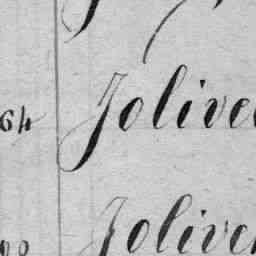 64 Jolive
Jolive